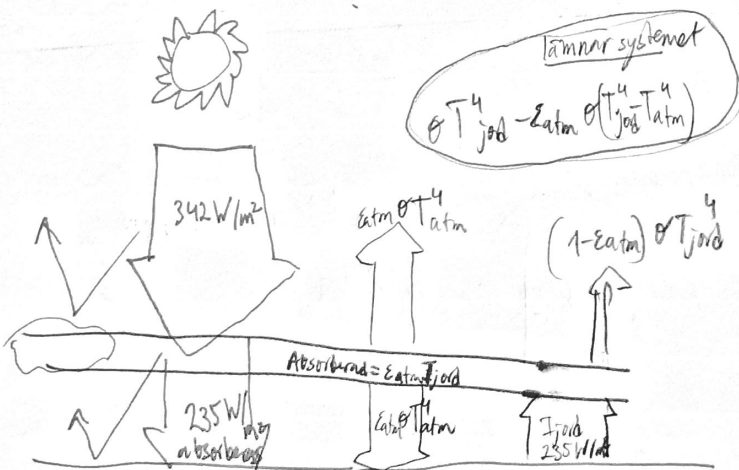 lämnar systemet
σT⁴jord - εatm σ(T⁴jord - T⁴atm)
342 W/m²
εatm σT⁴atm
(1-εatm) σT⁴jord
Absorberad = εatm Ijord
235 W/m²
absorberas
εatm σT⁴atm
Ijord
235 W/m²